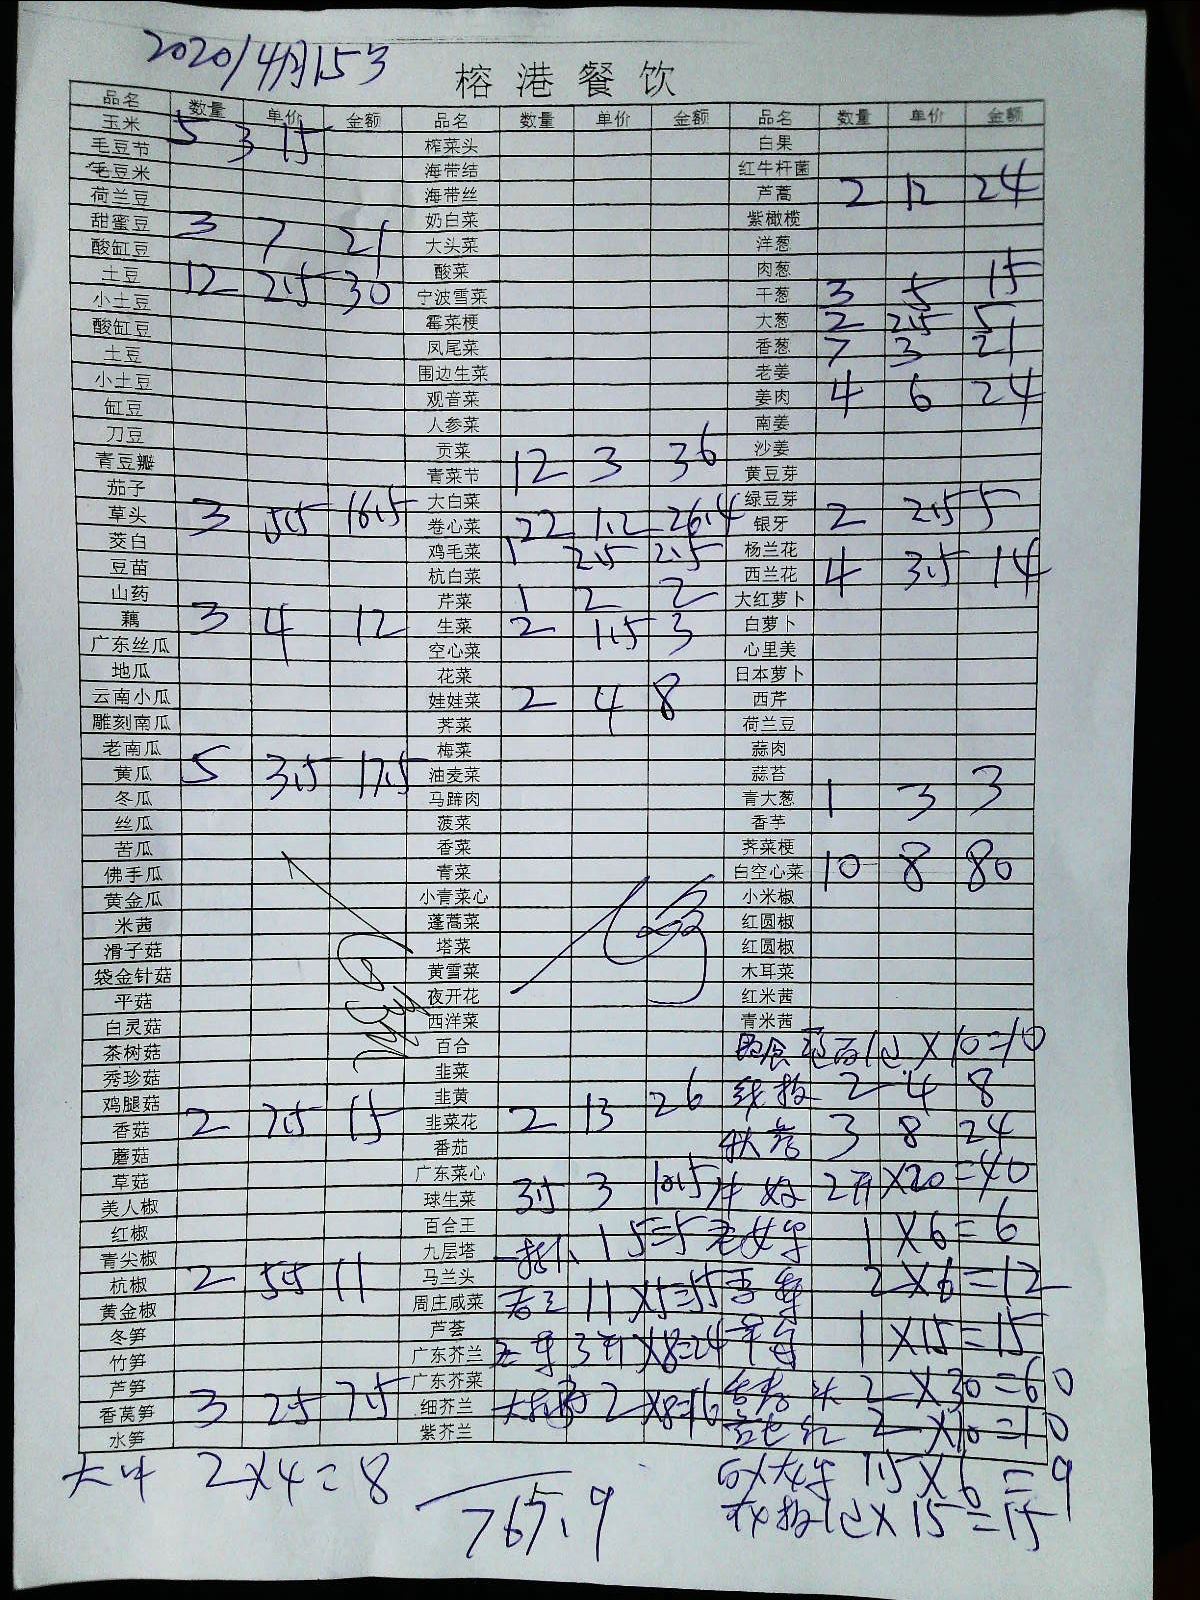 2020/4月15日
榕港餐饮
品名 数量 单价 金额 品名 数量 单价 金额 品名 数量 单价 金额
玉米 5 3 15 榨菜头 白果
毛豆节 海带结 红牛杆菌
毛豆米 海带丝 芦蒿 2 12 24
荷兰豆 奶白菜 紫橄榄
甜蜜豆 3 7 21 大头菜 洋葱
酸缸豆 酸菜 肉葱
土豆 12 2.5 30 宁波雪菜 干葱 3 5 15
小土豆 霉菜梗 大葱 2 2.5 5
酸缸豆 凤尾菜 香葱 7 3 21
土豆 围边生菜 老姜
小土豆 观音菜 姜肉 4 6 24
缸豆 人参菜 南姜
刀豆 贡菜 沙姜
青豆瓣 青菜节 12 3 36 黄豆芽
茄子 大白菜 绿豆芽
草头 3 5.5 16.5 卷心菜 22 1.2 26.4 银牙 2 2.5 5
茭白 鸡毛菜 1 2.5 2.5 杨兰花
豆苗 杭白菜 西兰花 4 3.5 14
山药 芹菜 1 2 2 大红萝卜
藕 3 4 12 生菜 2 1.5 3 白萝卜
广东丝瓜 空心菜 心里美
地瓜 花菜 日本萝卜
云南小瓜 娃娃菜 2 4 8 西芹
雕刻南瓜 荠菜 荷兰豆
老南瓜 梅菜 蒜肉
黄瓜 5 3.5 17.5 油麦菜 蒜苔
冬瓜 马蹄肉 青大葱 1 3 3
丝瓜 菠菜 香芋
苦瓜 香菜 荠菜梗
佛手瓜 青菜 白空心菜 10 8 80
黄金瓜 小青菜心 小米椒
米茜 蓬蒿菜 红圆椒
滑子菇 塔菜 红圆椒
袋金针菇 黄雪菜 木耳菜
平菇 夜开花 红米茜
白灵菇 西洋菜 青米茜
茶树菇 百合 X10=10
秀珍菇 韭菜 线椒 2 4 8
鸡腿菇 韭黄
香菇 2 7.5 15 韭菜花 2 13 26 3 8 24
蘑菇 番茄
草菇 广东菜心 X20=40
美人椒 球生菜 3.5 3 10.5
红椒 百合王 1 X6=6
青尖椒 九层塔 1 5=5
杭椒 2 5.5 11 马兰头 2 X6=12
黄金椒 周庄咸菜 11 X5=55
冬笋 芦荟 1 X15=15
竹笋 广东芥兰 X8=24
芦笋 广东芥菜 2 X30=60
香莴笋 3 2.5 7.5 细芥兰 2 X8=16
水笋 紫芥兰 2 X10=10
2X4=8 1.5X6=9
765.9 X15=15